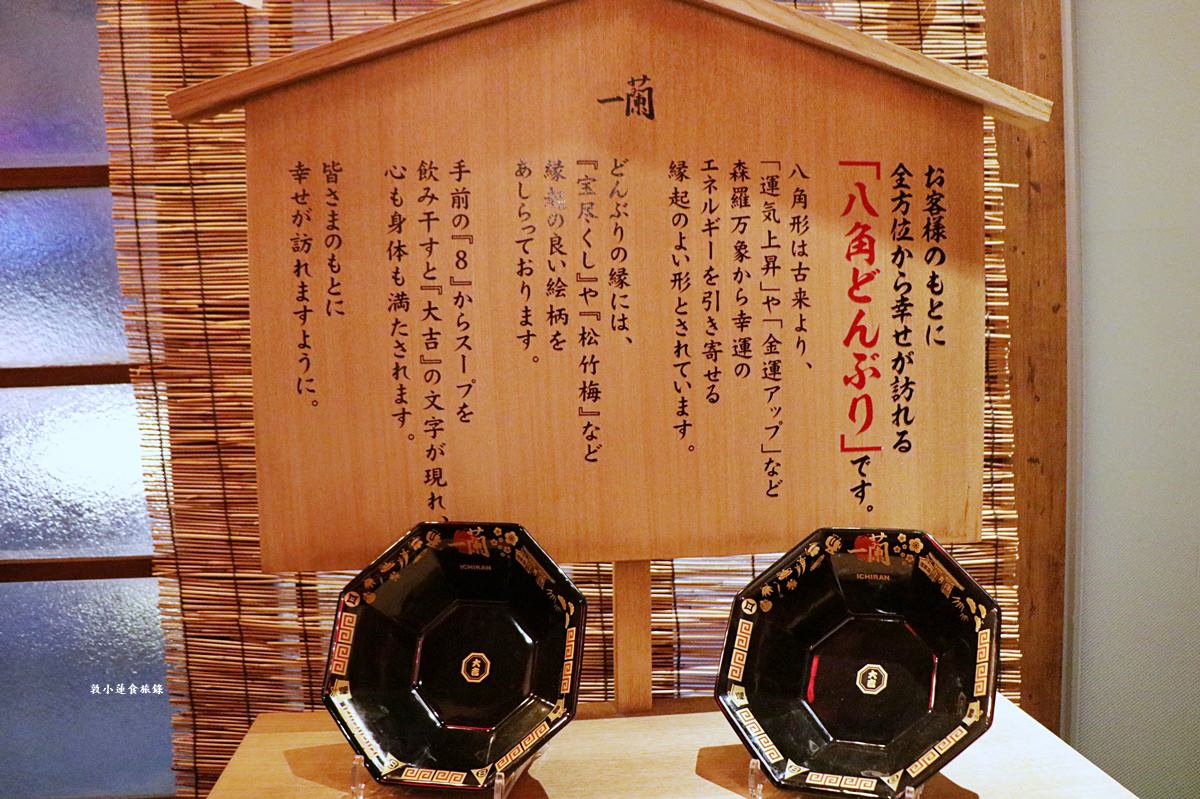 一蘭
お客様のもとに
全方位から幸せが訪れる
「八角どんぶり」です。
八角形は古来より、
「運気上昇」や「金運アップ」など
森羅万象から幸運の
エネルギーを引き寄せる
縁起のよい形とされています。
どんぶりの縁には、
『宝尽くし』や『松竹梅』など
縁起の良い絵柄を
あしらっております。
手前の『8』からスープを
飲み干すと『大吉』の文字が現れ、
心も身体も満たされます。
皆さまのもとに
幸せが訪れますように。
一蘭
ICHIRAN
大吉
8
一蘭
ICHIRAN
大吉
8
敦小蓮食旅錄